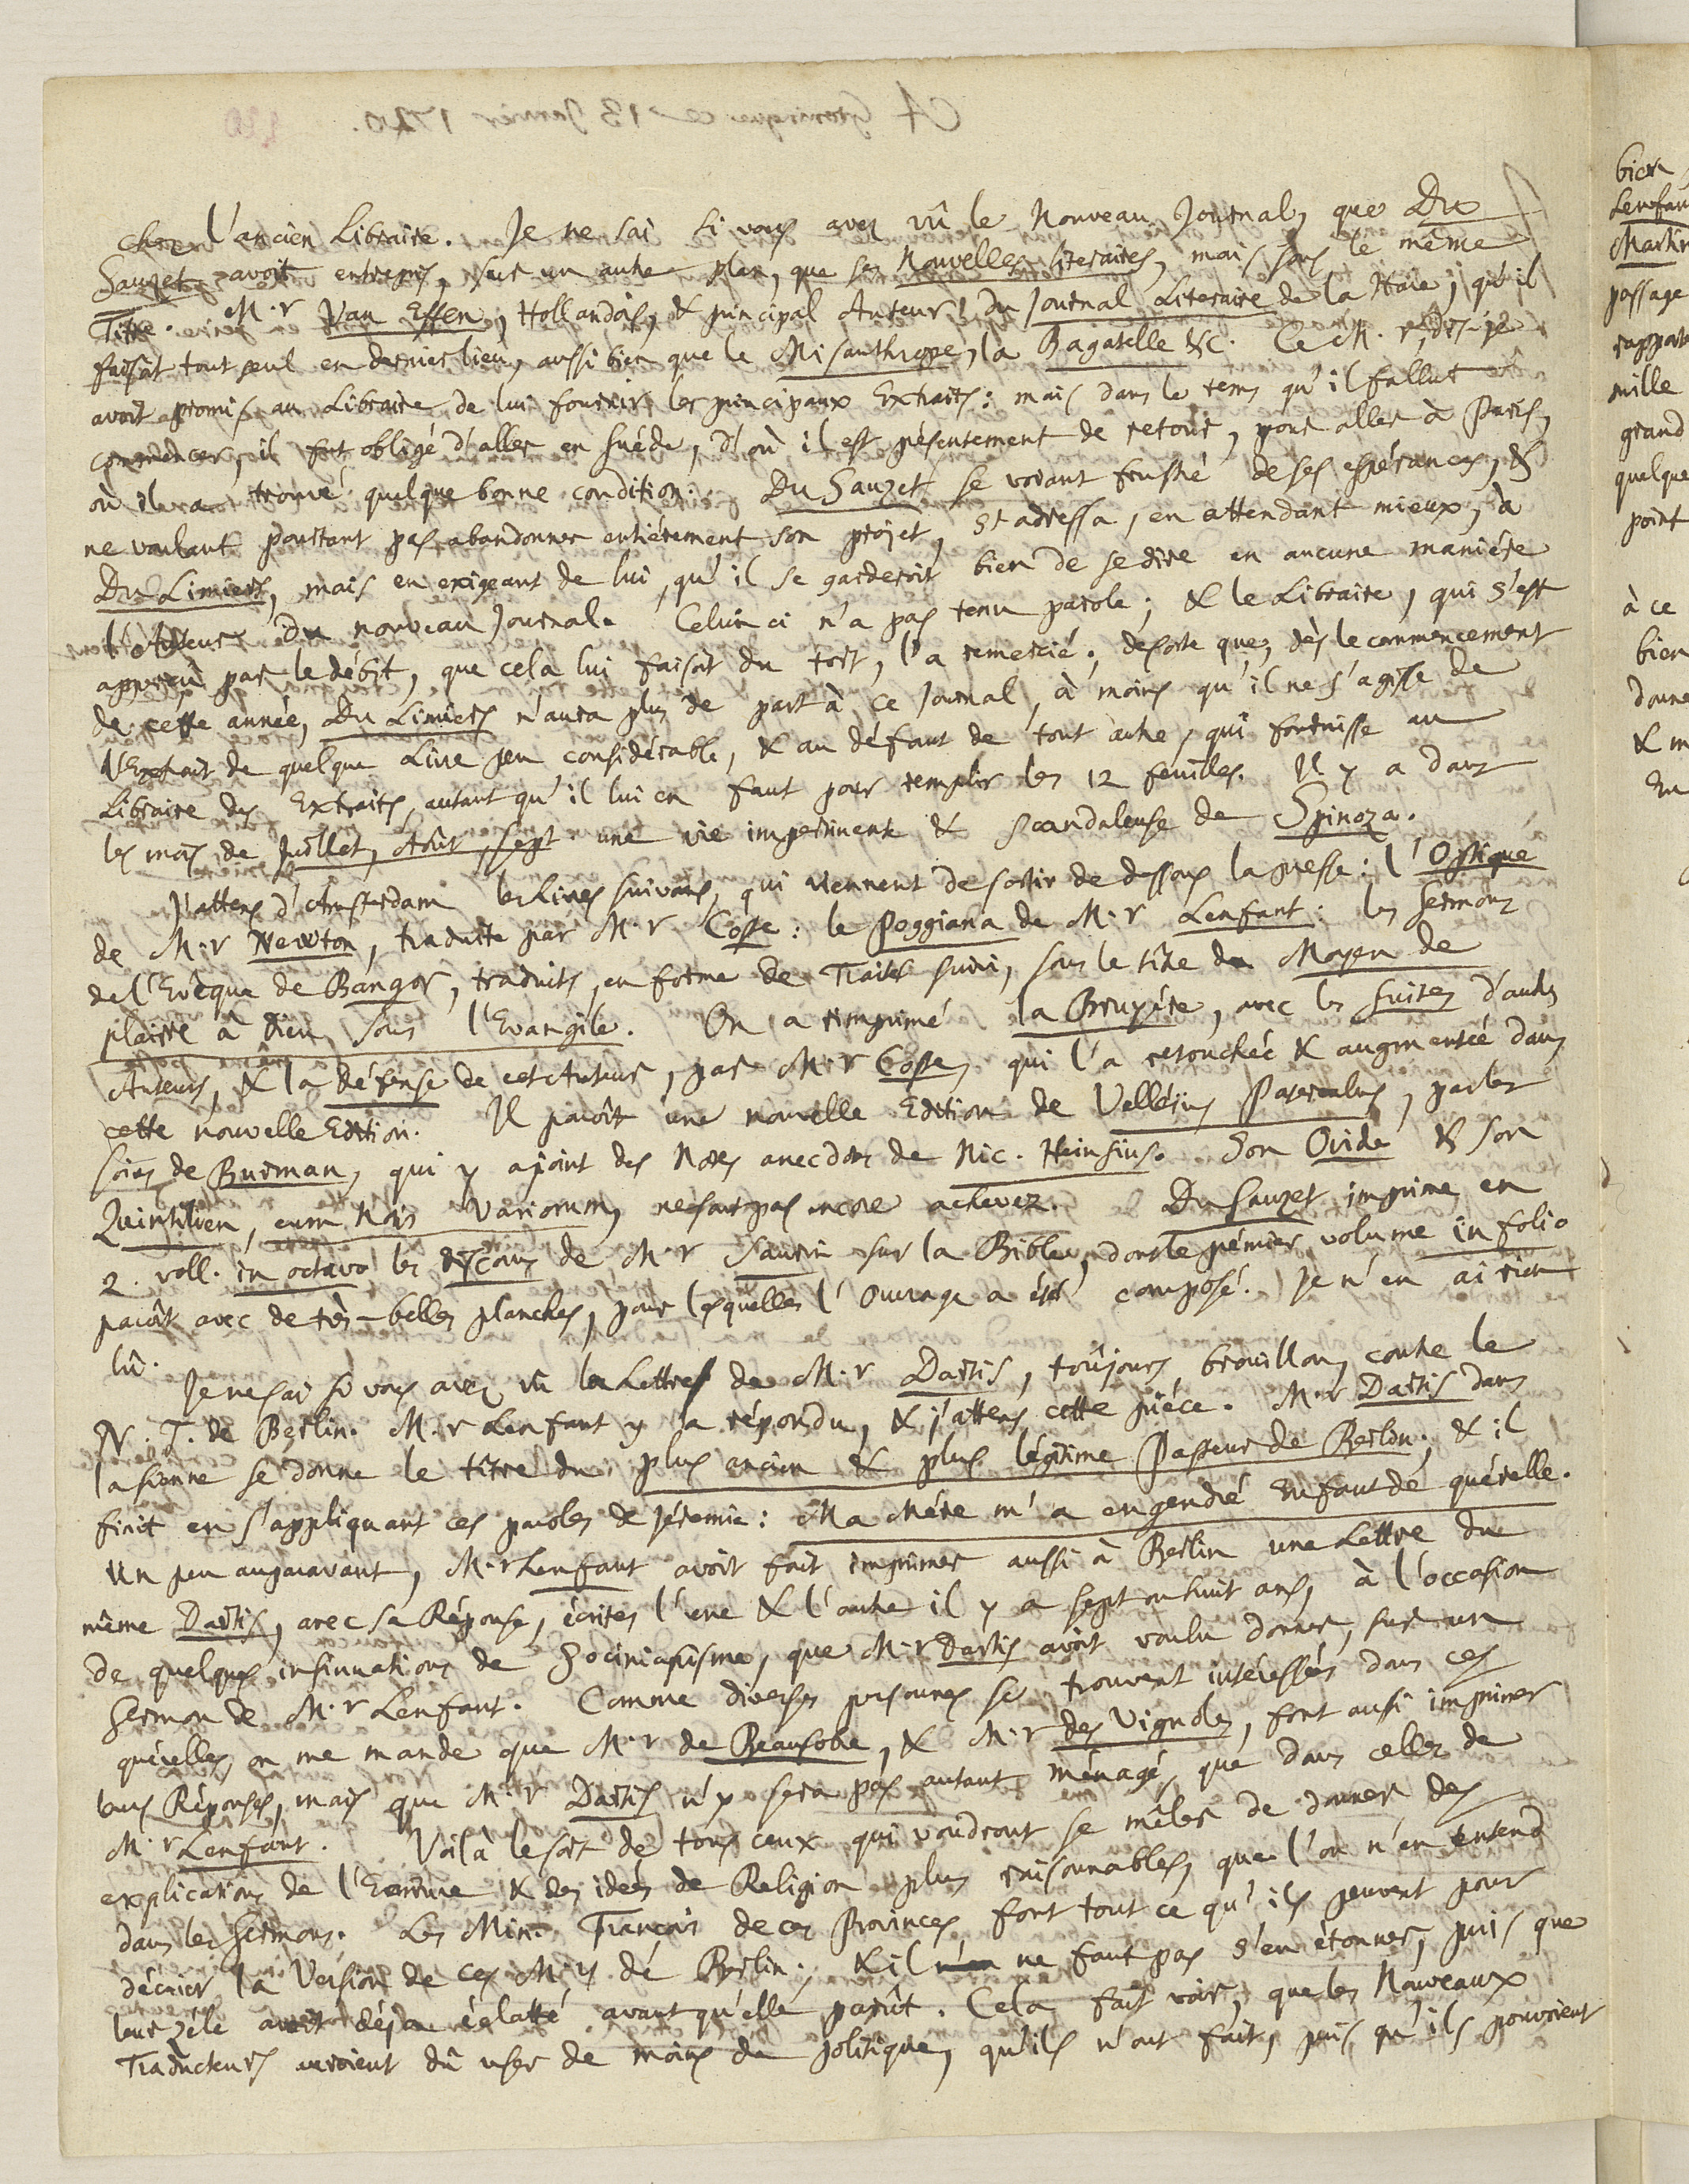 chez l'ancien Libraire. Je ne sai si vous avez vû le Nouveau Journal, que Du
Sauzet avoit entrepris, sur un autre plan, que ses Nouvelles literaires, mais sous le même
Titre. M.r Van Effen, Hollandois, & principal Auteur du Journal Literaire de la Haie, qu'il
faisoit tout seul en dernier lieu, aussi bien que le Misanthrope, la Bagatelle &c. Ce M.r, dis-je
avoit promis au Libraire de lui fournir les principaux Extraits: mais dans le tems qu'il fallut
commencer, il fut obligé d'aller en Suéde, d'où il est présentement de retour, pour aller à Paris,
où il a trouvé quelque bonne condition. Du Sauzet se voiant frustré de ses espérances, &
ne voulant pourtant pas abandonner entiérement son projet, s'adressa, en attendant mieux, à
Du Limiers, mais en exigeant de lui, qu'il se garderoit bien de se dire en aucune maniére
l'Auteur du nouveau Journal. Celui-ci n'a pas tenu parole; & le Libraire, qui s'est
apperçû par le débit, que cela lui faisoit du tort, l'a remercié; desorte que, dès le commencement
de cette année, Du Limiers n'aura plus de part à ce Journal, à moins qu'il ne s'agisse de
l'Extrait de quelque Livre peu considérable, & au défaut de tout autre, qui fournisse au
Libraire des Extraits, autant qu'il lui en faut pour remplir les 12 feuilles. Il y a dans
les mois de Juillet, Août, Sept. une vie impertinente & scandaleuse de Spinoza.
J'attens d'Amsterdam les Livres suivans, qui viennent de sortir de dessous la presse: l'Optique
de M.r Newton, traduite par M.r Coste: le Poggiana de M.r Lenfant: les Sermons
de l'Evêque de Bangor, traduits, en forme de Traité suivi, sous le titre du Moyen de
plaire à Dieu sous l'Evangile. On a rimprimé la Bruyére, avec les suites d'autres
Auteurs, & la défense de cet Auteur, par M.r Coste, qui l'a retouchée & augmentée dans
cette nouvelle Edition. Il paroît une nouvelle Edition de Velléius Paterculus, par les
soins de Burman, qui y a joint des Notes anecdotes de Nic. Heinsius. Son Ovide & son
Quintilien, cum Notis Variorum, ne sont pas encore achevez. Du Sauzet imprime en
2. voll. in octavo les discours de M.r Saurin sur la Bible, dont le prémier volume in folio
paroît avec de très-belles planches, pour lesquelles l'Ouvrage a été composé. Je n'en ai rien
lû.
Je ne sai si vous avez vû la Lettre de M.r Dartis, toûjours brouillon, contre le
N. T. de Berlin. M.r Lenfant y a répondu, & j'attens cette piéce. M.r Dartis dans
la sienne se donne le titre du plus ancien & plus légitime Pasteur de Berlin; & il
finit en s'appliquant ces paroles de Jérémie: Ma Mére m'a engendré Enfant de quérelle.
Un peu auparavant, M.r Lenfant avoit fait imprimer aussi à Berlin une Lettre du
même Dartis, avec sa Réponse, écrites l'une & l'autre il y a sept ou huit ans, à l'occasion
de quelques insinuations de Socinianisme, que M.r Dartis avoit voulu donner, sur un
Sermon de M.r Lenfant. Comme diverses personnes se trouvent intéressées dans ces
quérelles, on me mande que M.r de Beausobre, & M.r des Vignoles, font aussi imprimer
leurs Réponses, mais que M.r Dartis n'y sera pas autant ménagé, que dans celles de
M.r Lenfant. Voilà le sort de tous ceux qui voudront se mêler de donner des
explications de l'Ecriture & des idées de Religion plus raisonnables, que l'on n'en entend
dans les Sermons. Les Min. François de ces Provinces font tout ce qu'ils peuvent pour
décrier la Version de ces M.rs de Berlin; & il ne faut pas s'en étonner, puis que
leur zéle avoit déja éclatté avant qu'elle parût. Cela fait voir, que les Nouveaux
Traducteurs auroient dû user de moins de politique, qu'ils n'ont fait, puis qu'ils pouvoient
bien
Lenfan
Martin
passage
rapporte
mille
grand
quelque
point
à ce
bien
donne
& m